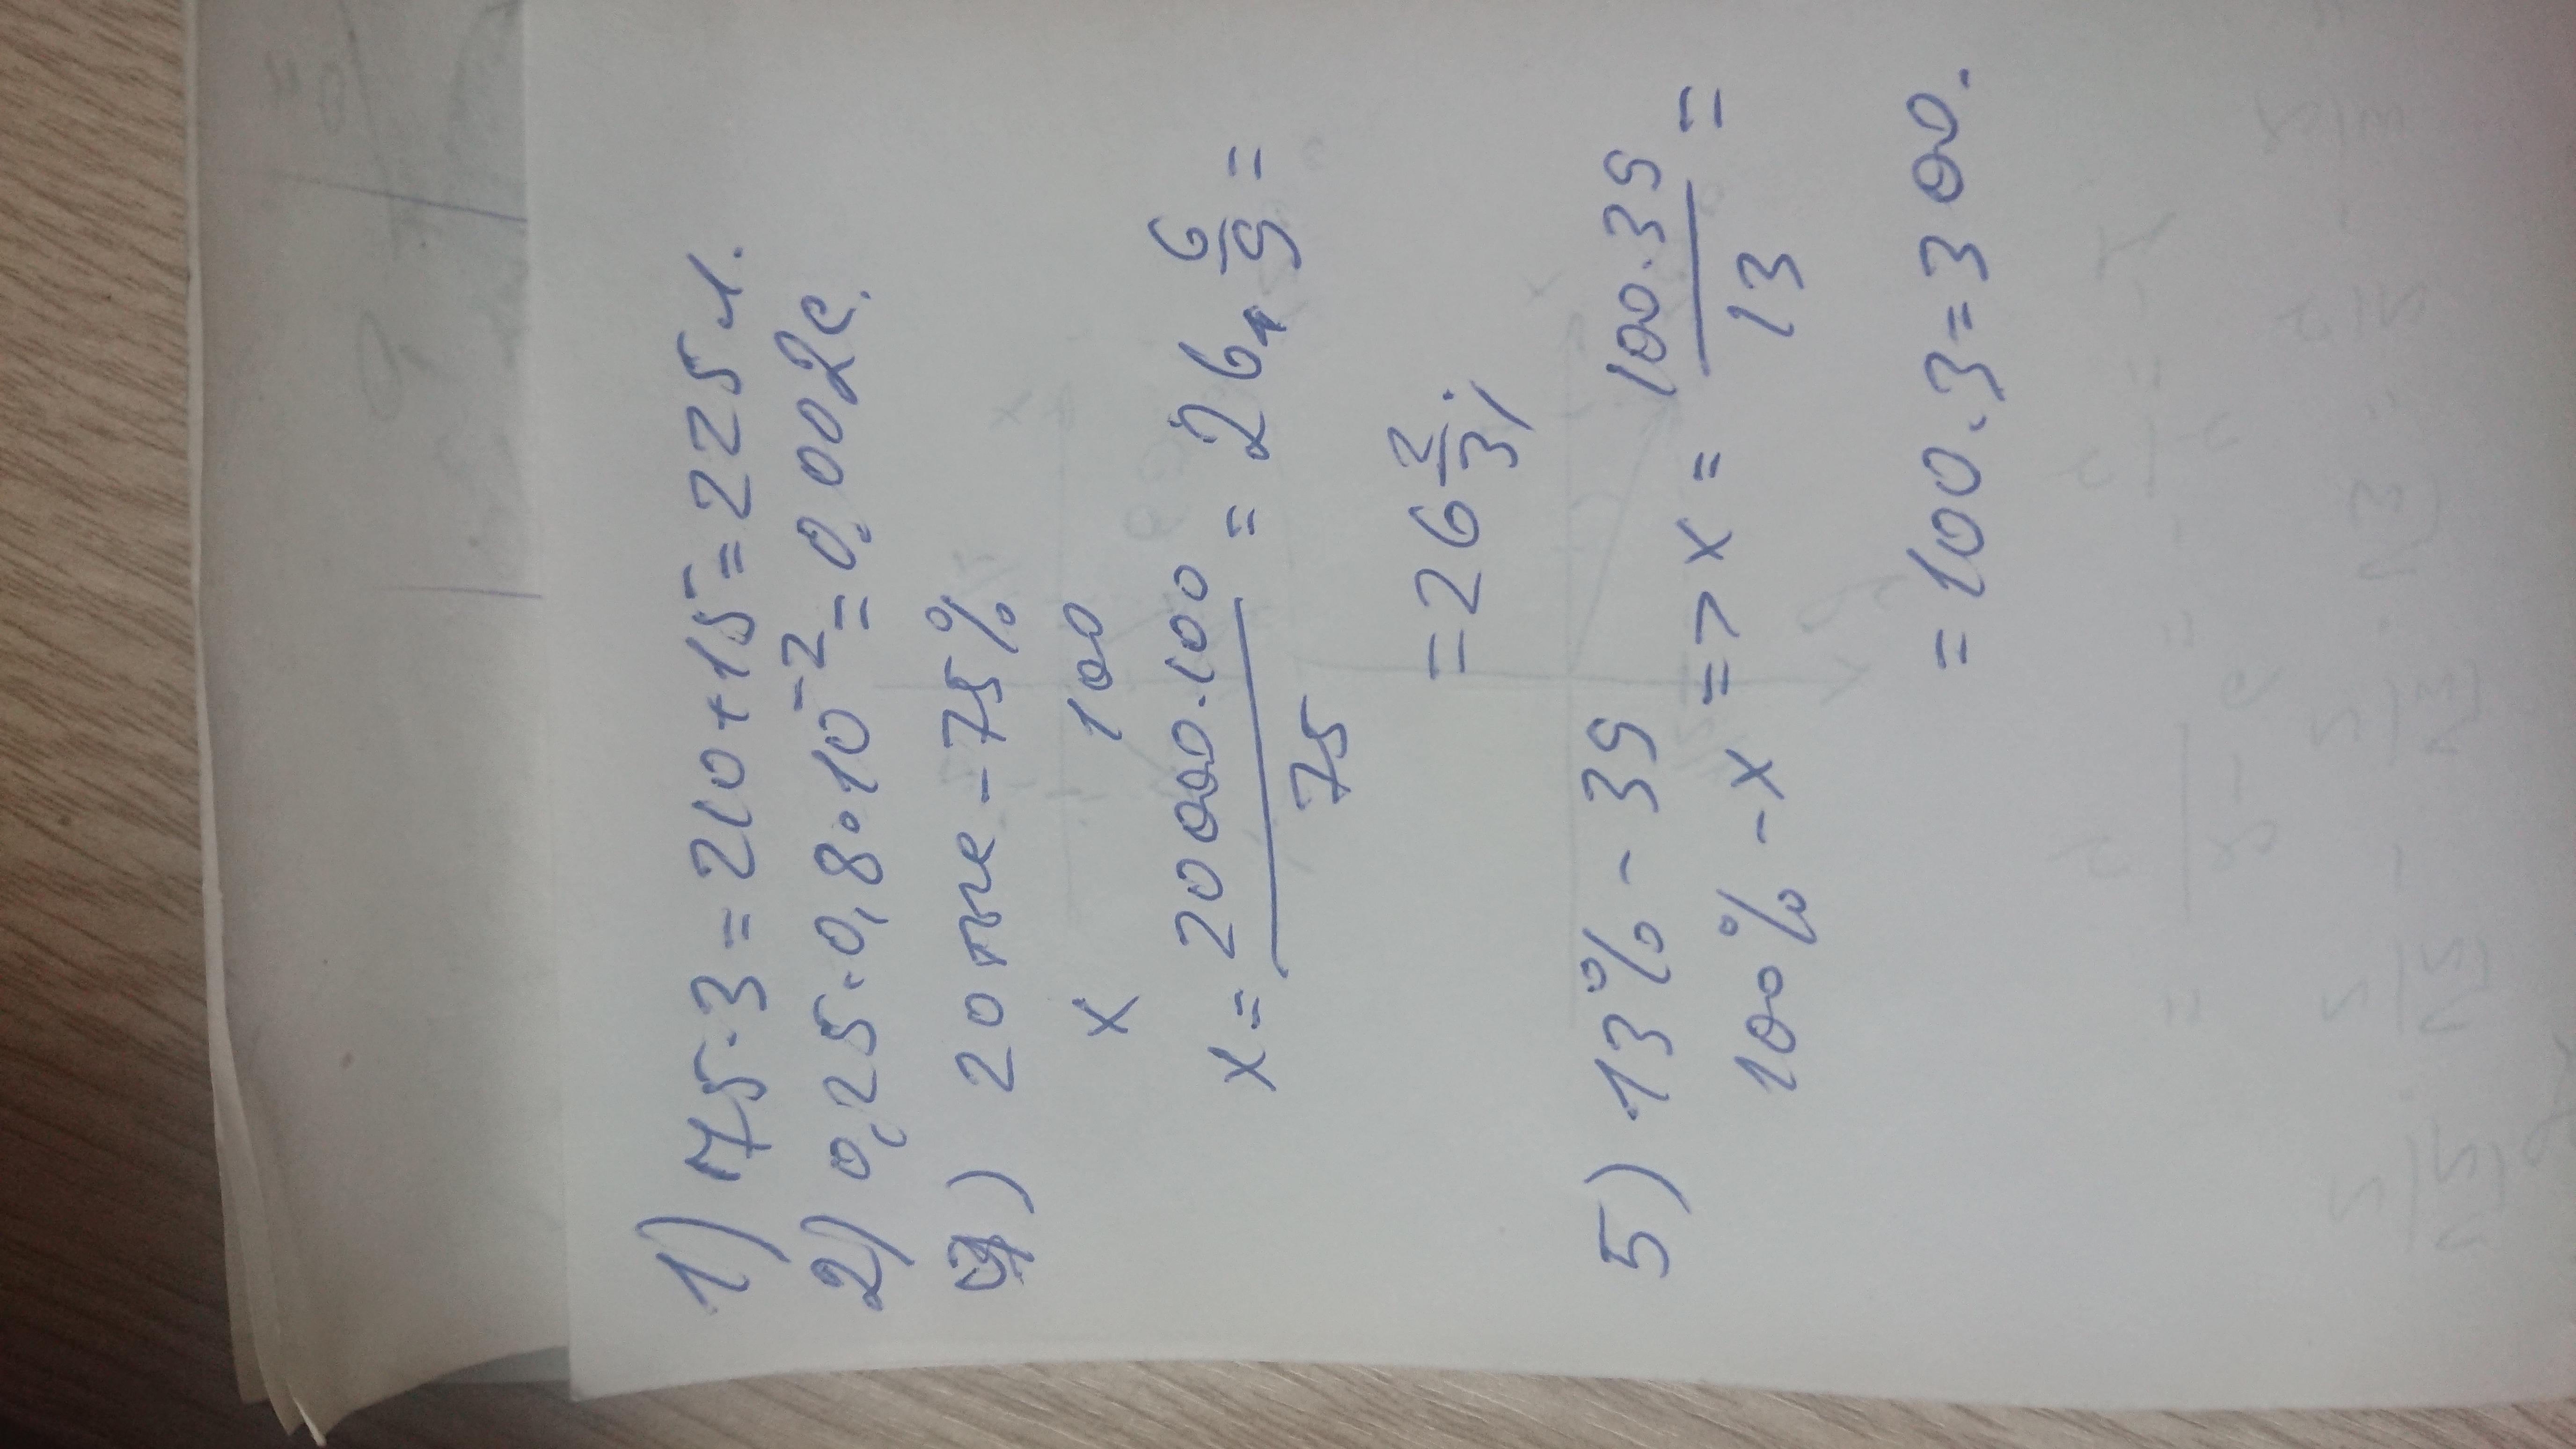 1) 75·3=210+15=225 л.
2) 0,25·0,8·10⁻²=0,002 с.
4) 20 тыс - 75%
x 100
x = 20000·100/75 = 26 6/9 =
= 26 2/3;
5) 13% - 39
100% - x => x = 100·39/13 =
= 100·3=300.